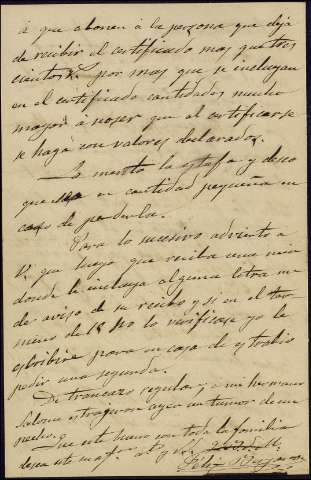 á que abonen á la persona que deje
de recibir el certificado mas que tres
cientos por mas que se incluyan
en el certificado cantidades mucho
mayor á no ser que al certificarse
se haga con valores declarados.
La mento la estafa y deseo
que sea en cantidad pequeña en
caso de perderla.
Para lo sucesivo advierto a
V. que luego que reciba una mia
donde le incluya alguna letra me
de aviso de su recibo y si en el ter
mino de 18 no lo verificase yo le
escribiré para en caso de extravio
pedir una segunda.
De trancazo regular y a mi hermano
Saloma extrajeron ayer un tumor de un
pecho.
Que esté bueno con toda la familia
desea este
Felix